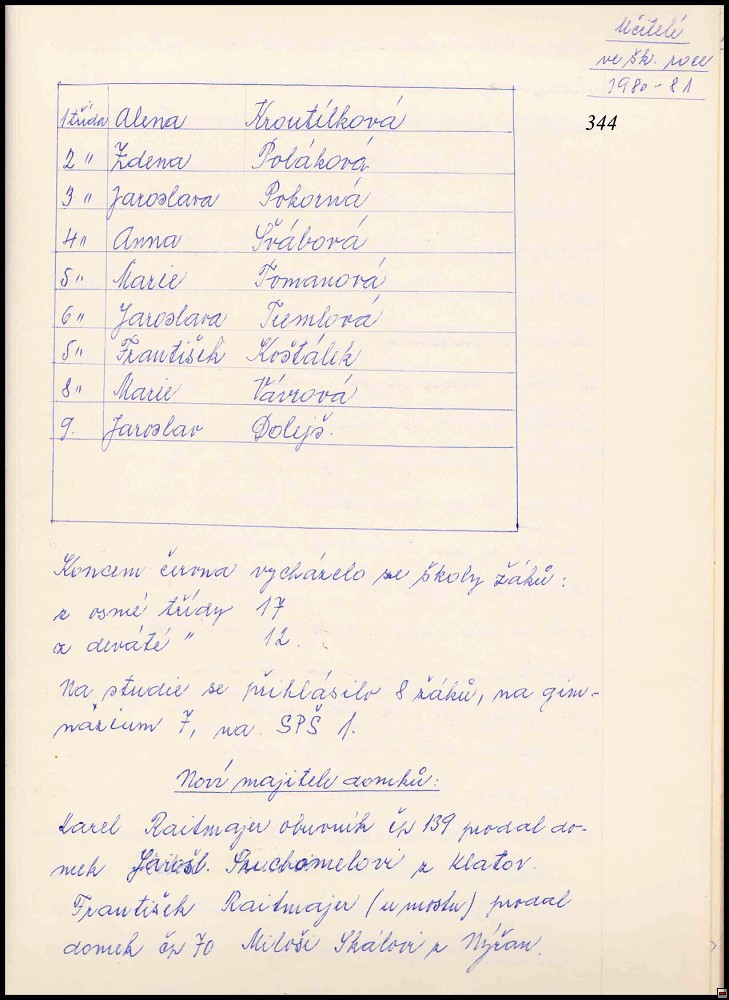 Učitelé
ve šk. roce
1980-81
344
1 třída Alena Kroutilková
2 " Zdena Poláková
3 " Jaroslava Pokorná
4 " Anna Švábová
5 " Marie Tomanová
6 " Jaroslava Tremlová
5 " František Košťálek
8 " Marie Vávrová
9. Jaroslav Dolejš.
Koncem června vycházelo ze školy žáků:
z osmé třídy 17
z deváté " 12.
Na studie se přihlásilo 8 žáků, na gim-
názium 7, na SPŠ 1.
Noví majitelé domků:
Karel Raitmajer obuvník čp 139 prodal do-
mek Jarosl. Suchomelovi z Klatov.
František Raitmajer (u mostu) prodal
domek čp 70 Miloši Skálovi z Nýřan.